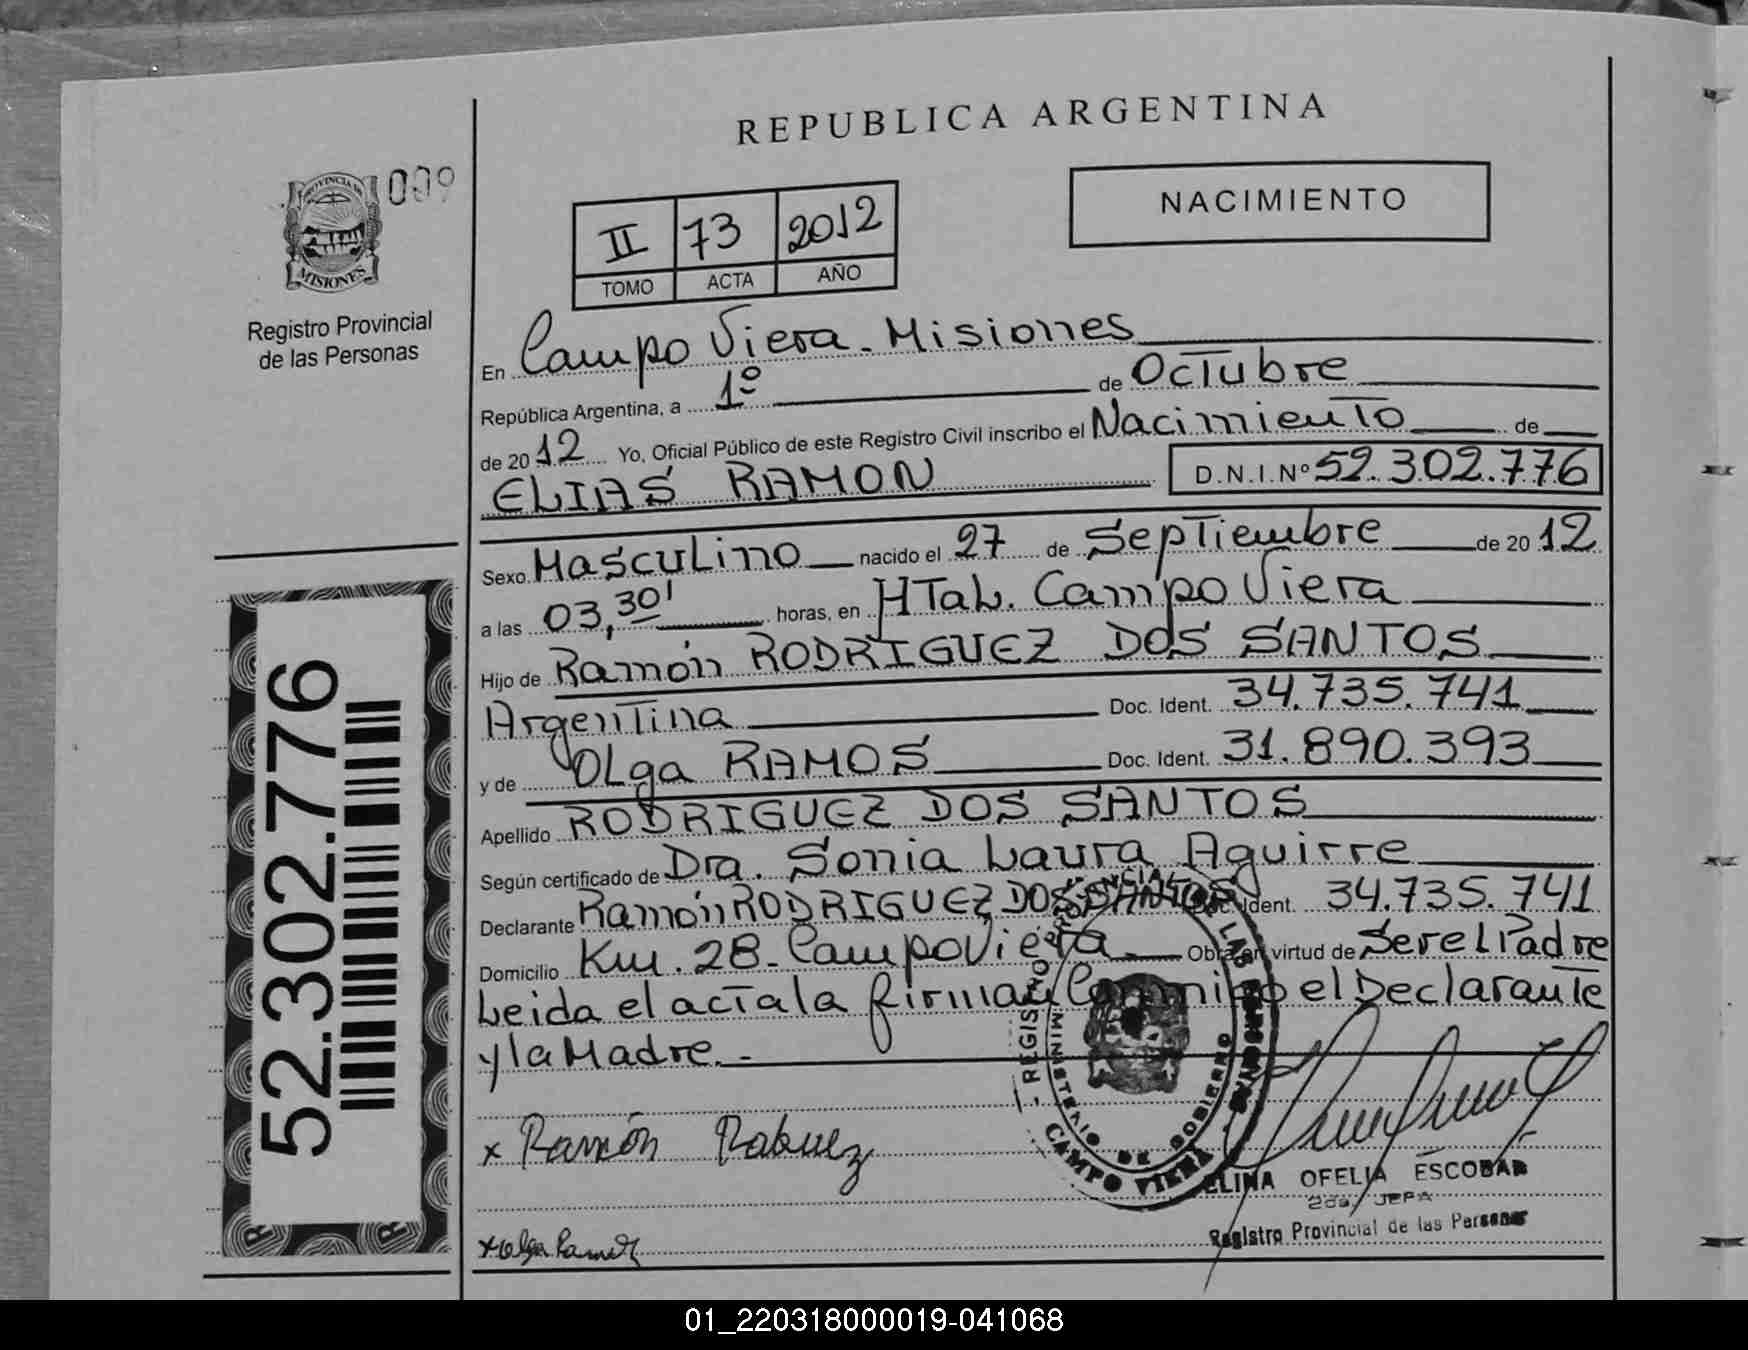 REPUBLICA ARGENTINA
PROVINCIA DE
MISIONES
009
Registro Provincial
de las Personas
II 73 2012
TOMO ACTA AÑO
NACIMIENTO
En Campo Viera - Misiones
República Argentina, a 1º de Octubre
de 2012 Yo, Oficial Público de este Registro Civil inscribo el Nacimiento de
ELIAS RAMON D.N.I.Nº 52.302.776
Sexo Masculino nacido el 27 de Septiembre de 2012
a las 03,30' horas, en HTal. Campo Viera
Hijo de Ramón RODRIGUEZ DOS SANTOS
Argentina Doc. Ident. 34.735.741
y de Olga RAMOS Doc. Ident. 31.890.393
Apellido RODRIGUEZ DOS SANTOS
Según certificado de Dra. Sonia Laura Aguirre
Declarante Ramón RODRIGUEZ DOS SANTOS Doc. Ident. 34.735.741
Domicilio Km. 28 - Campo Viera Obra en virtud de Ser el Padre
Leida el acta la firman Conmigo el Declarante
y la Madre.-
x Ramón
x Olga
- REGISTRO PROVINCIAL DE LAS PERSONAS -
MINISTERIO DE GOBIERNO
CAMPO VIERA
ELINA OFELIA ESCOBAR
2da. JEFA
Registro Provincial de las Personas
52.302.776
01_220318000019-041068